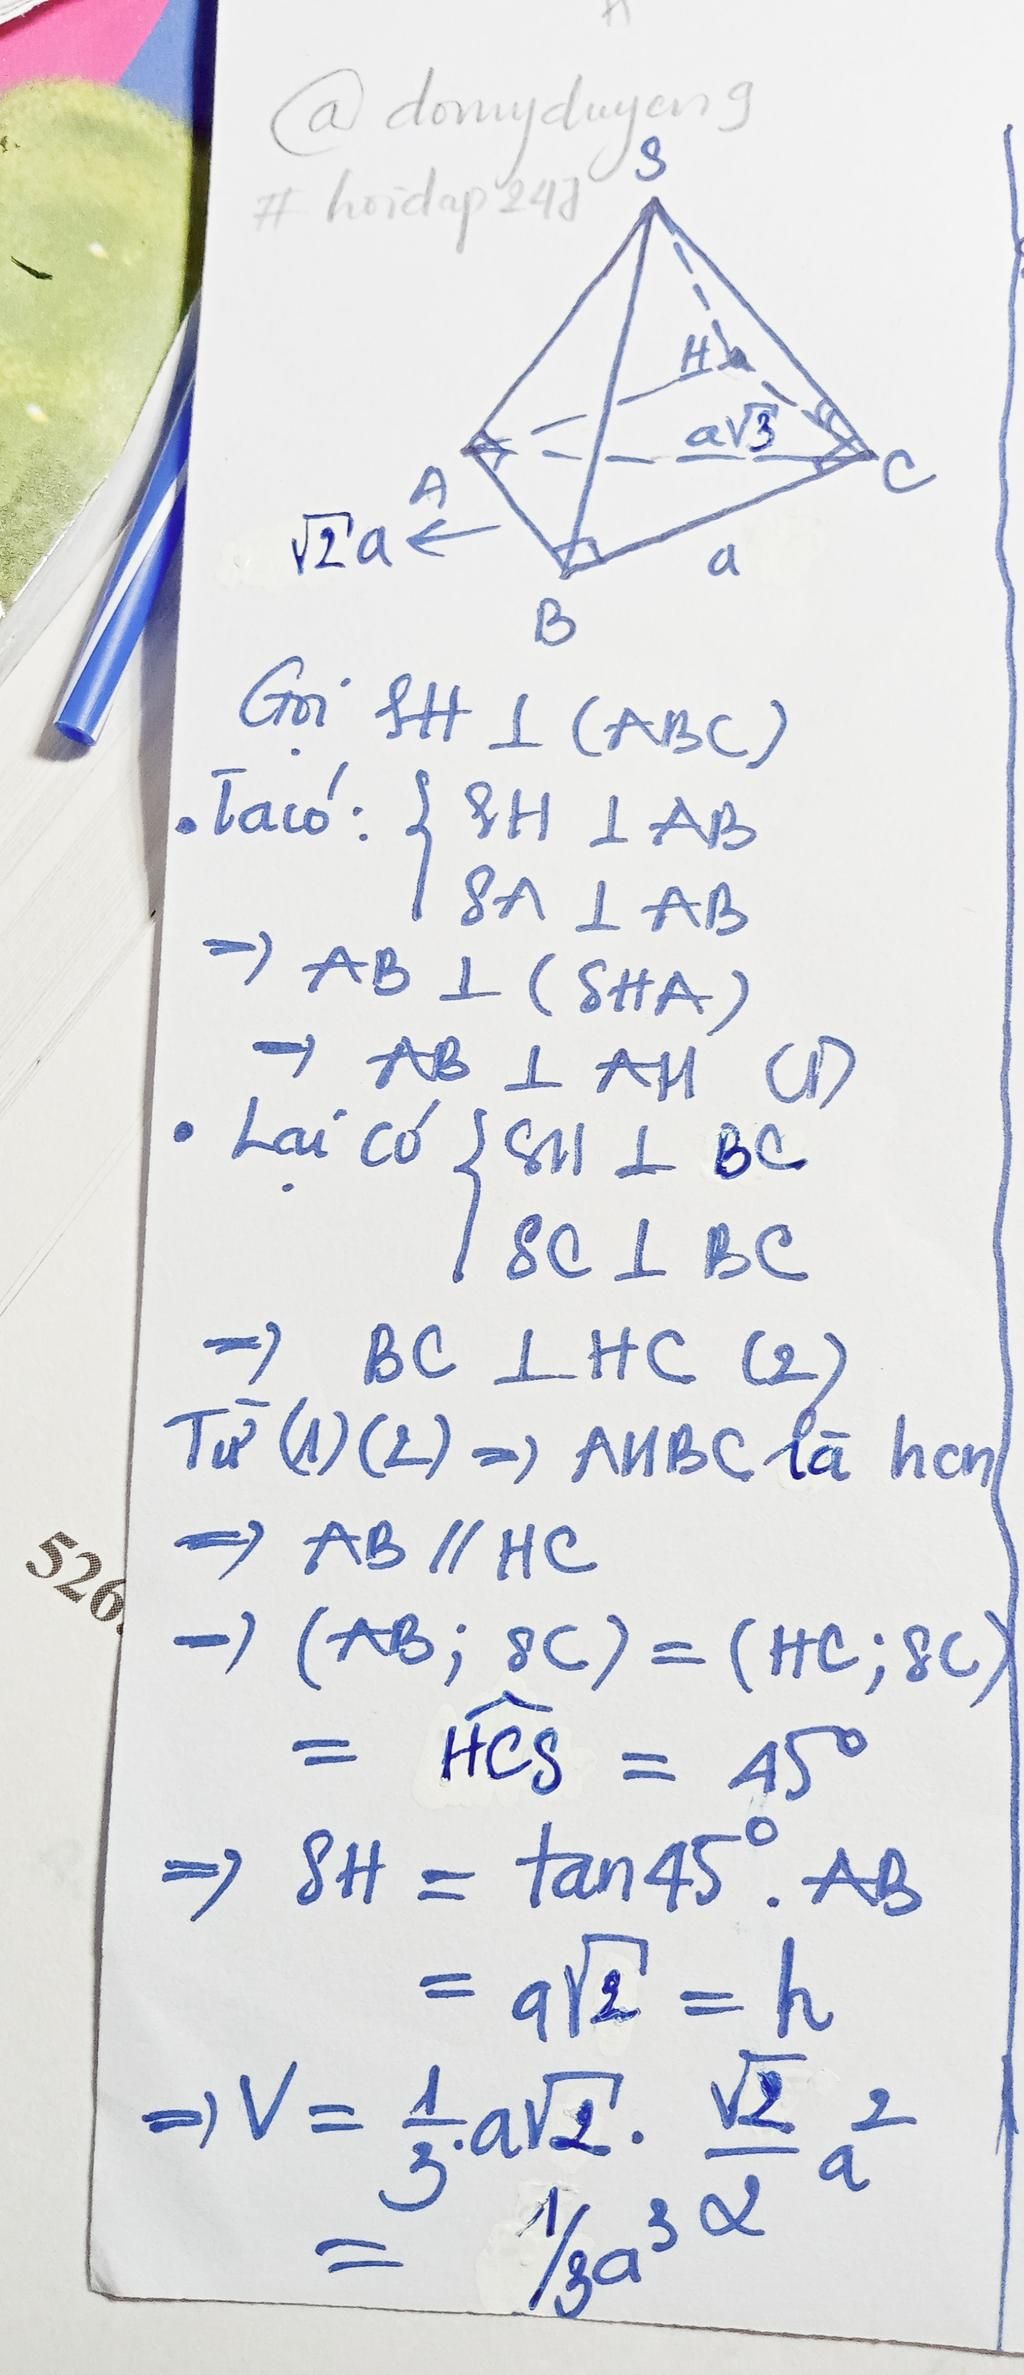 @ domyduyeng
# hoidap247
S
H
a√3
A
C
√2a ←
a
B
Gọi SH ⊥ (ABC)
• Ta có: { SH ⊥ AB
SA ⊥ AB
=> AB ⊥ (SHA)
=> AB ⊥ AH (1)
• Lại có { SH ⊥ BC
SC ⊥ BC
=> BC ⊥ HC (2)
Từ (1)(2) => AHBC là hcn
=> AB // HC
=> (AB; SC) = (HC; SC)
= HCS = 45°
=> SH = tan45° . AB
= a√2 = h
=> V = 1/3 . a√2 . √2/2 a²
= 1/3a³
526